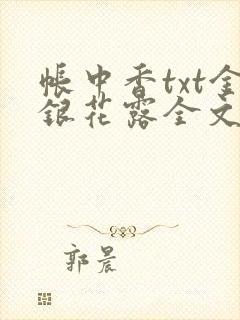 帐中香txt金
银花露全文
郭晨